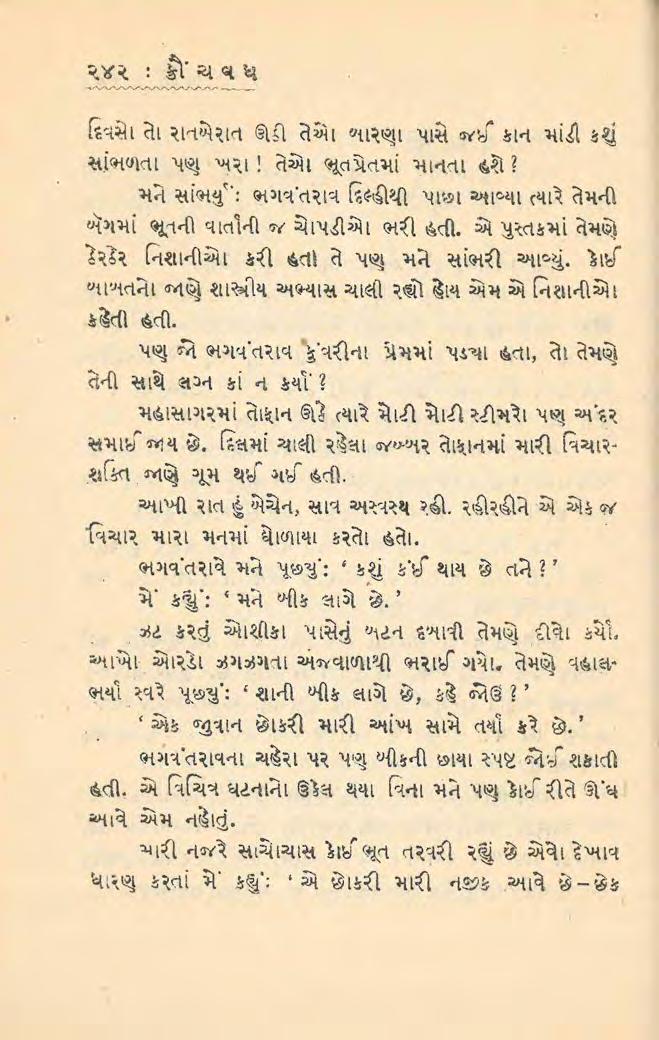 ૨૪૨ : ક્રૌંચવધ
દિવસો તો રાતબેરાત ઊઠી તેઓ બારણા પાસે જઈ કાન માંડી કશું
સાંભળતા પણ ખરા! તેઓ ભૂતપ્રેતમાં માનતા હશે?
મને સાંભર્યું: ભગવંતરાવ દિલ્હીથી પાછા આવ્યા ત્યારે તેમની
બૅગમાં ભૂતની વાર્તાની જ ચોપડીઓ ભરી હતી. એ પુસ્તકમાં તેમણે
ઠેરઠેર નિશાનીઓ કરી હતી તે પણ મને સાંભરી આવ્યું. કોઈ
બાબતનો જાણે શાસ્ત્રીય અભ્યાસ ચાલી રહ્યો હોય એમ એ નિશાનીઓ
કહેતી હતી.
પણ જો ભગવંતરાવ કુંવરીના પ્રેમમાં પડ્યા હતા, તો તેમણે
તેની સાથે લગ્ન કાં ન કર્યાં?
મહાસાગરમાં તોફાન ઊઠે ત્યારે મોટી મોટી સ્ટીમરો પણ અંદર
સમાઈ જાય છે. દિલમાં ચાલી રહેલા જબ્બર તોફાનમાં મારી વિચાર-
શક્તિ જાણે ગૂમ થઈ ગઈ હતી.
આખી રાત હું બેચેન, સાવ અસ્વસ્થ રહી. રહીરહીને એ એક જ
વિચાર મારા મનમાં ઘોળાયા કરતો હતો.
ભગવંતરાવે મને પૂછ્યું: ‘કશું કંઈ થાય છે તને?’
મેં કહ્યું: ‘મને બીક લાગે છે.’
ઝટ કરતું ઓશીકા પાસેનું બટન દબાવી તેમણે દીવો કર્યો.
આખો ઓરડો ઝગઝગતા અજવાળાથી ભરાઈ ગયો. તેમણે વહાલ-
ભર્યા સ્વરે પૂછ્યું: ‘શાની બીક લાગે છે, કહે જોઉં?’
‘એક જુવાન છોકરી મારી આંખ સામે તર્યા કરે છે.’
ભગવંતરાવના ચહેરા પર પણ બીકની છાયા સ્પષ્ટ જોઈ શકાતી
હતી. એ વિચિત્ર ઘટનાનો ઉકેલ થયા વિના મને પણ કોઈ રીતે ઊંઘ
આવે એમ નહોતું.
મારી નજરે સાચોચાસ કોઈ ભૂત તરવરી રહ્યું છે એવો દેખાવ
ધારણ કરતાં મેં કહ્યું: ‘એ છોકરી મારી નજીક આવે છે–છેક